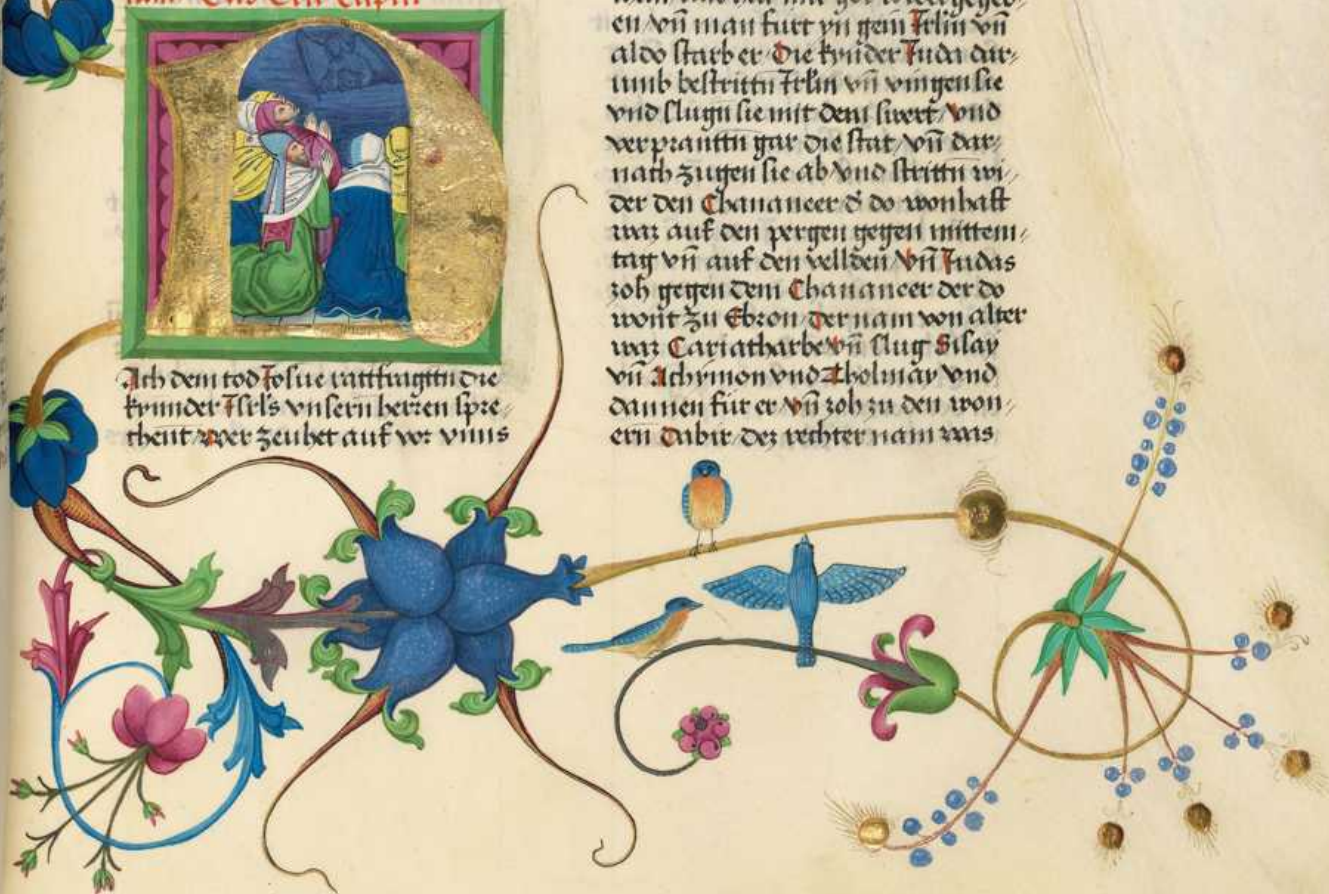 Das Erst Capitel
N
Ach dem tod Josue rattfragttn die
kynnder Isrls vnsern herren spre⸗
chent wer zeuhet auf vor vnns
en vn̄ man furt yn gein Jrlm vn̄
aldo starb er Die kynder Juda dar⸗
umb bestrittn Jrlm vn̄ viengen sie
vnd slugn sie mit dem swert vnd
verpranttn gar die stat vn̄ dar⸗
nach zugen sie ab vnd strittn wi⸗
der den Chananeer d̄ do wonhaft
waz auf den pergen gegen mittem⸗
tag vn̄ auf den vellden vn̄ Judas
zoh gegen dem Chananeer der do
wont zu Ebron der nam von alter
waz Cariatharbe vn̄ slug Sisay
vn̄ Achymon vnd Tholmay vnd
dannen für er vn̄ zoh zu den won⸗
ern Dabir dez rechter nam was